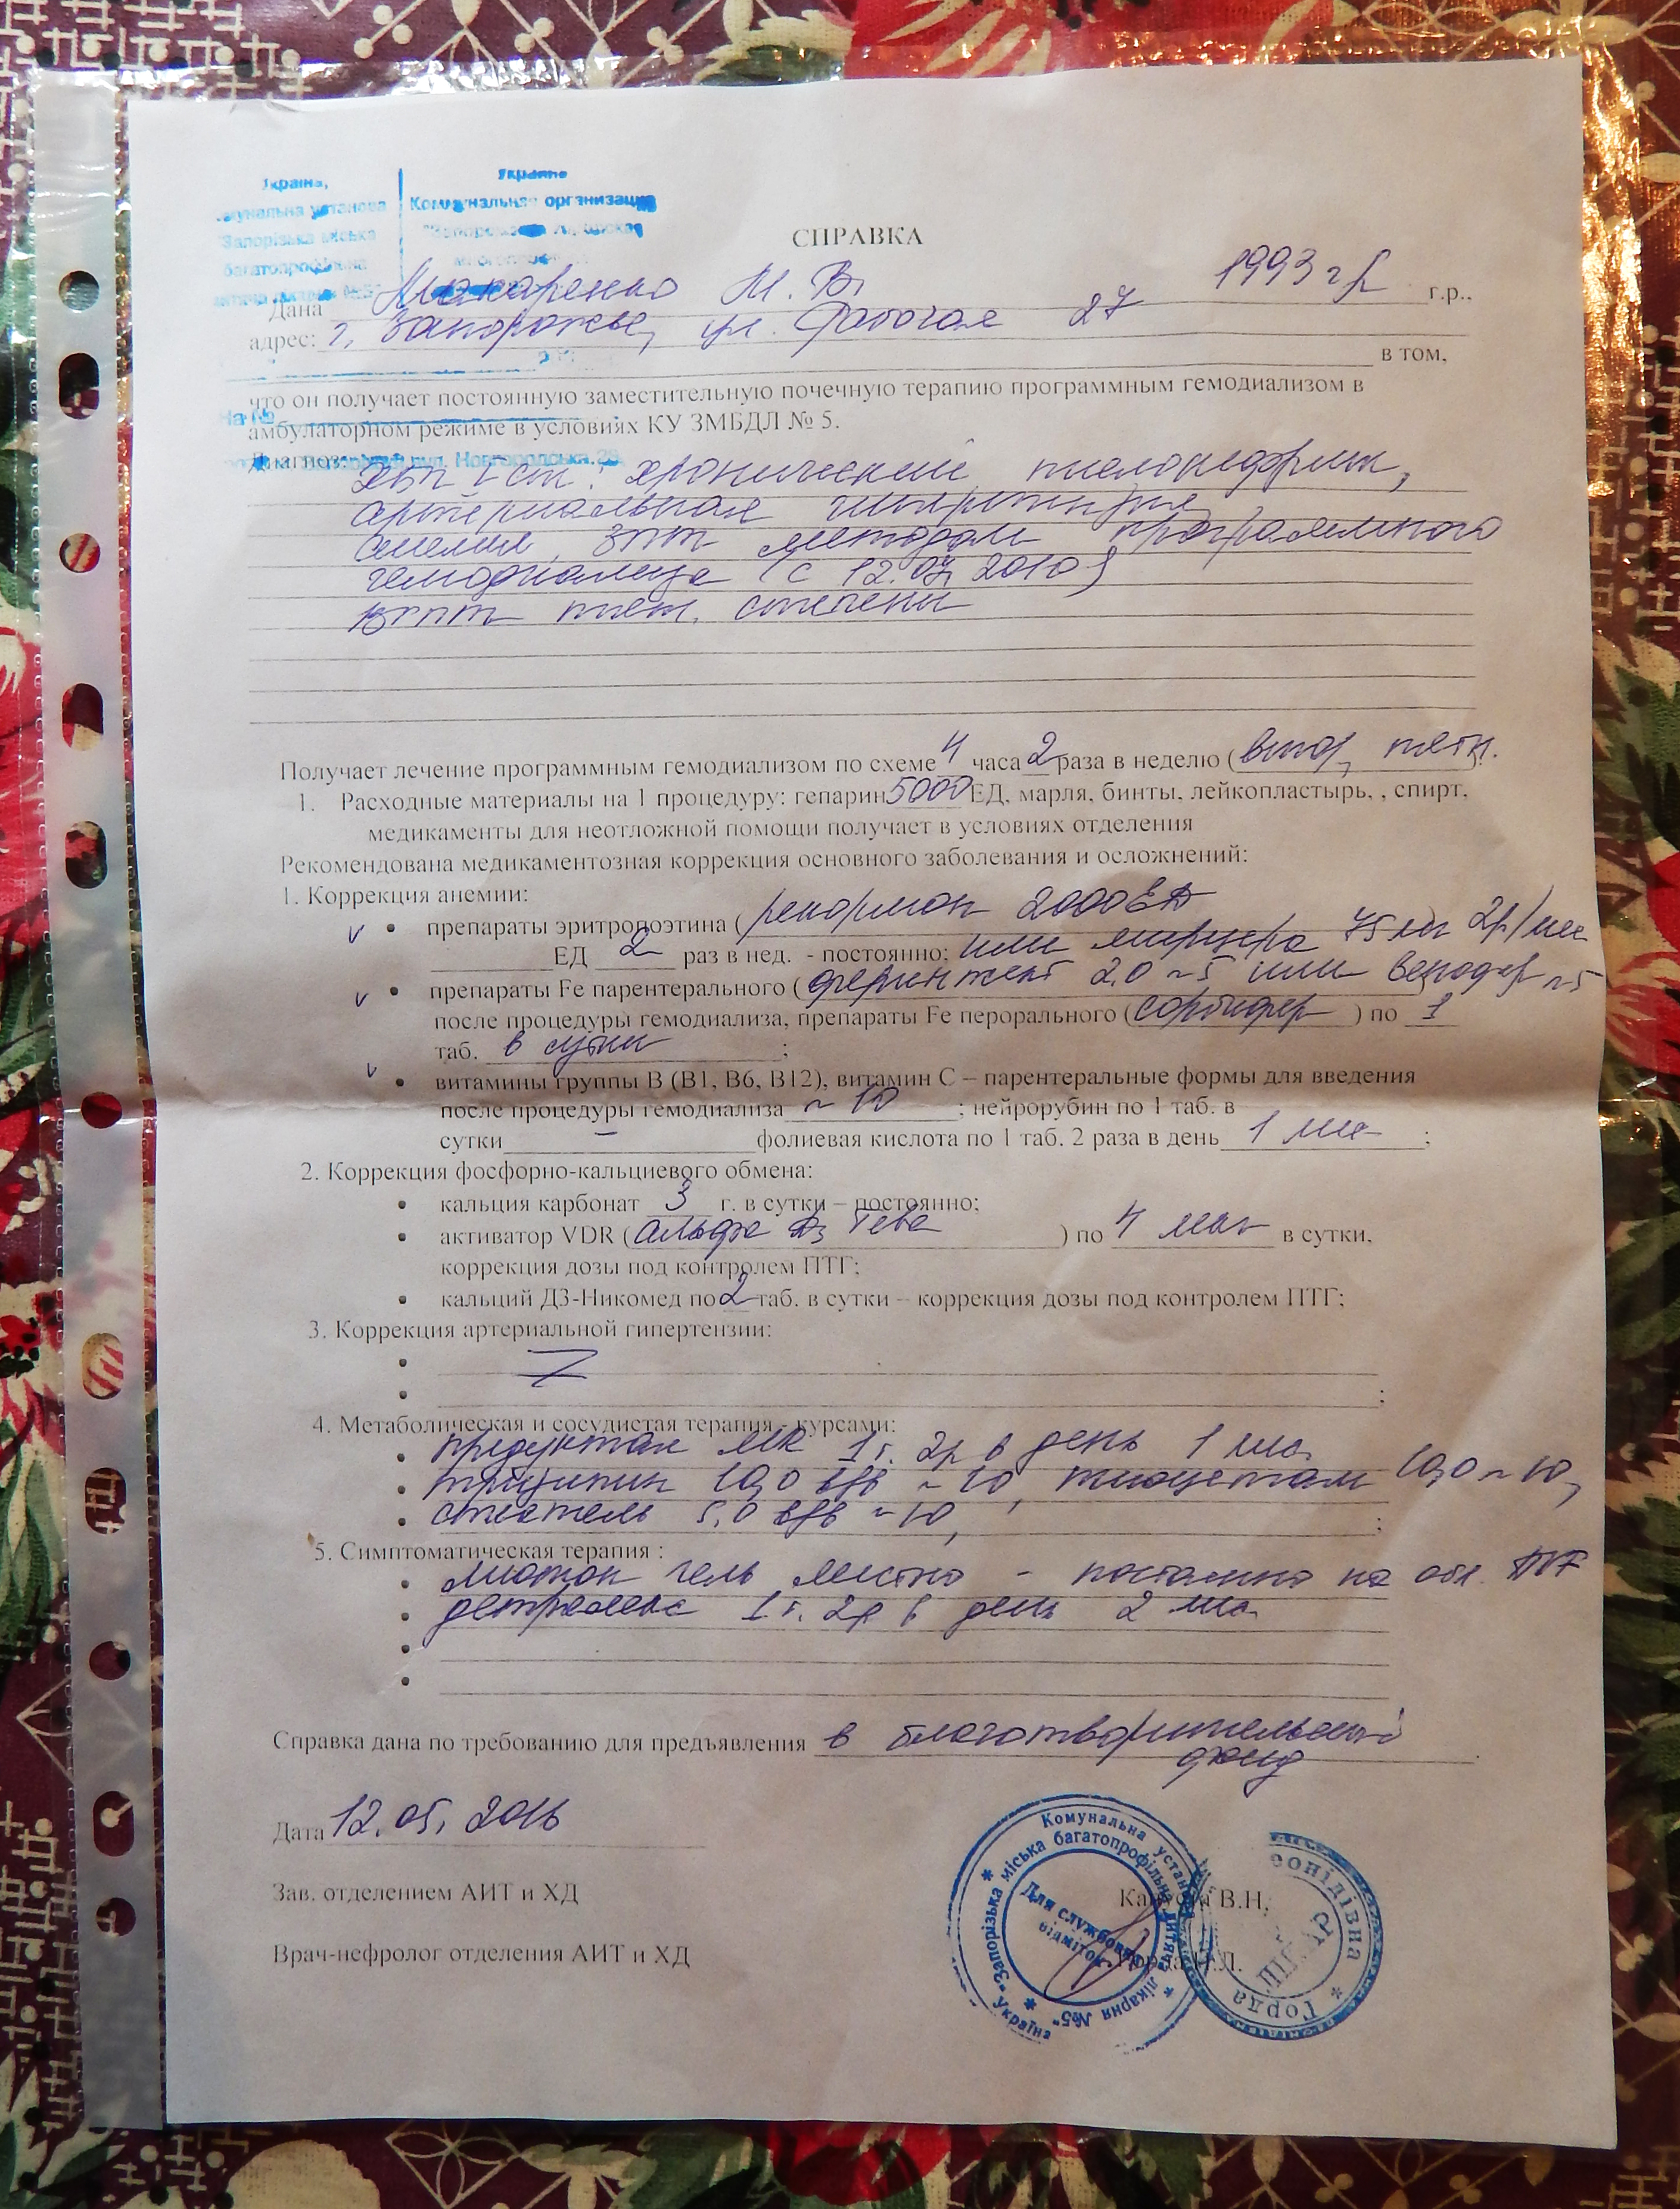 Україна,
Украина
Коммунальная организация
Запорізька міська
багатопрофільна
СПРАВКА
Дана Макаренко М. В. 1993 г.р. г.р.,
адрес: г. Запорожье, ул. Рабочая 27
в том,
что он получает постоянную заместительную почечную терапию программным гемодиализом в
На №
амбулаторном режиме в условиях КУ ЗМБДЛ № 5.
Диагноз: вул. Новгородська,28
ХБП V ст: хронический пиелонефрит,
артериальная гипертензия,
анемия, ЗПТ методом программного
гемодиализа (с 12.07.2010)
ВГПТ тяж. степени
Получает лечение программным гемодиализом по схеме 4 часа 2 раза в неделю (втор, пятн.).
1. Расходные материалы на 1 процедуру: гепарин 5000 ЕД, марля, бинты, лейкопластырь, , спирт,
медикаменты для неотложной помощи получает в условиях отделения
Рекомендована медикаментозная коррекция основного заболевания и осложнений:
1. Коррекция анемии:
v • препараты эритропоэтина (рекормон 2000 ЕД
ЕД 2 раз в нед. - постоянно; или мирцера 75 мкг 2р/мес
v • препараты Fe парентерального (феринжект 2,0 ~ 5 или венофер ~ 5
после процедуры гемодиализа, препараты Fe перорального (сорбифер ) по 1
таб. в сутки ;
v • витамины группы В (В1, В6, В12), витамин С – парентеральные формы для введения
после процедуры гемодиализа ~ 10 ; нейрорубин по 1 таб. в
сутки – фолиевая кислота по 1 таб. 2 раза в день 1 мес ;
2. Коррекция фосфорно-кальциевого обмена:
• кальция карбонат 3 г. в сутки – постоянно;
• активатор VDR (альфа Д3 Тева ) по 4 мкг в сутки,
коррекция дозы под контролем ПТГ;
• кальций Д3-Никомед по 2 таб. в сутки – коррекция дозы под контролем ПТГ;
3. Коррекция артериальной гипертензии:
•
• ;
4. Метаболическая и сосудистая терапия - курсами:
• предуктал МR 1т. 2р в день 1 мес.
• 10,0 в/в ~ 10, тиоцетам 10,0 ~ 10,
• 5,0 в/в ~ 10, ;
5. Симптоматическая терапия :
• гель местно - постоянно на обл.
• детралекс 1т. 2р в день 2 мес.
•
•
Справка дана по требованию для предъявления в благотворительный
фонд
Дата 12.05.2016
Зав. отделением АИТ и ХД В.Н.
Врач-нефролог отделения АИТ и ХД Горда
Комунальна установа
"Запорізька міська багатопрофільна дитяча лікарня №5"
Україна
Для службових відміток
Горда
Лікар